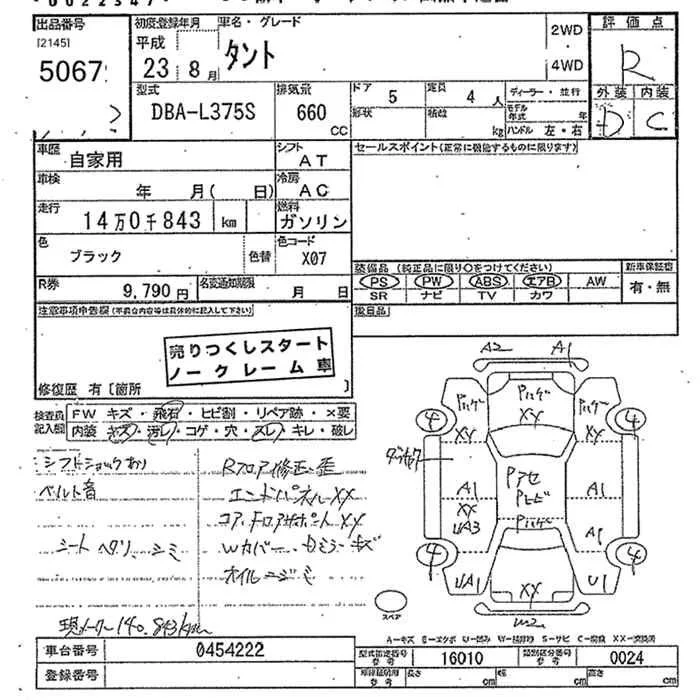 出品番号 初度登録年月 車名・グレード 2WD 評価点
[2145] 平成 タント
5067 23 8月 4WD R
型式 排気量 ドア 5 定員 4人 ディーラー・並行 外装 内装
DBA-L375S 660 形状 積載 モデル年式 年 D C
CC kg ハンドル 左・右
車歴 自家用 シフト AT セールスポイント(正常に機能するものに限ります)
車検 年 月( 日) 冷房 AC
走行 14万0千843 km 燃料 ガソリン
色 ブラック 色替 色コード X07
装備品 (純正品に限り○をつけてください) 新車保証書
R券 9,790円 名変通知期限 月 日
PS PW ABS エアB AW 有・無
SR ナビ TV カワ
注意事項申告欄(不具合内容等は具体的に記入して下さい) 後日品
売りつくしスタート
ノークレーム車
修復歴 有 [箇所 ]
検査員記入欄 FW キズ・飛石・ヒビ割・リペア跡・×要
内装 キズ・汚レ・コゲ・穴・スレ・キレ・破レ
シフトショックあり Rフロア修正・歪
ベルト音 エンドパネルXX
コア.Fロアサポート XX
シート ヘタリ、シミ
オイルニジミ
現メーター140,843km
A2 A1
Pバンパー XX
4 4
XX XX
A1 A1
XX
UA3 A1
4 4
UA1 U1
XX
スペア W2
A-キズ E-エクボ U-凹み W-補修跡 S-サビ C-腐蝕 XX-交換済
車台番号 0454222 型式指定番号 参考 16010 類別区分番号 参考 0024
登録番号 長さ cm 幅 cm 高さ cm